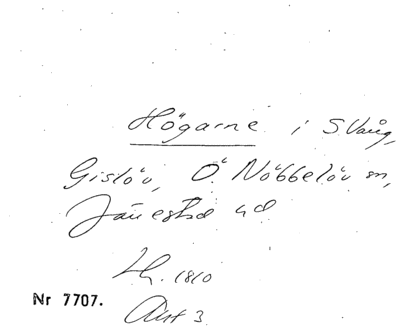 Högarne i S Vång,
Gislöv, Ö. Nöbbelöv sn,
Järrestad hd
Lh. 1810
Nr 7707.
Akt 3